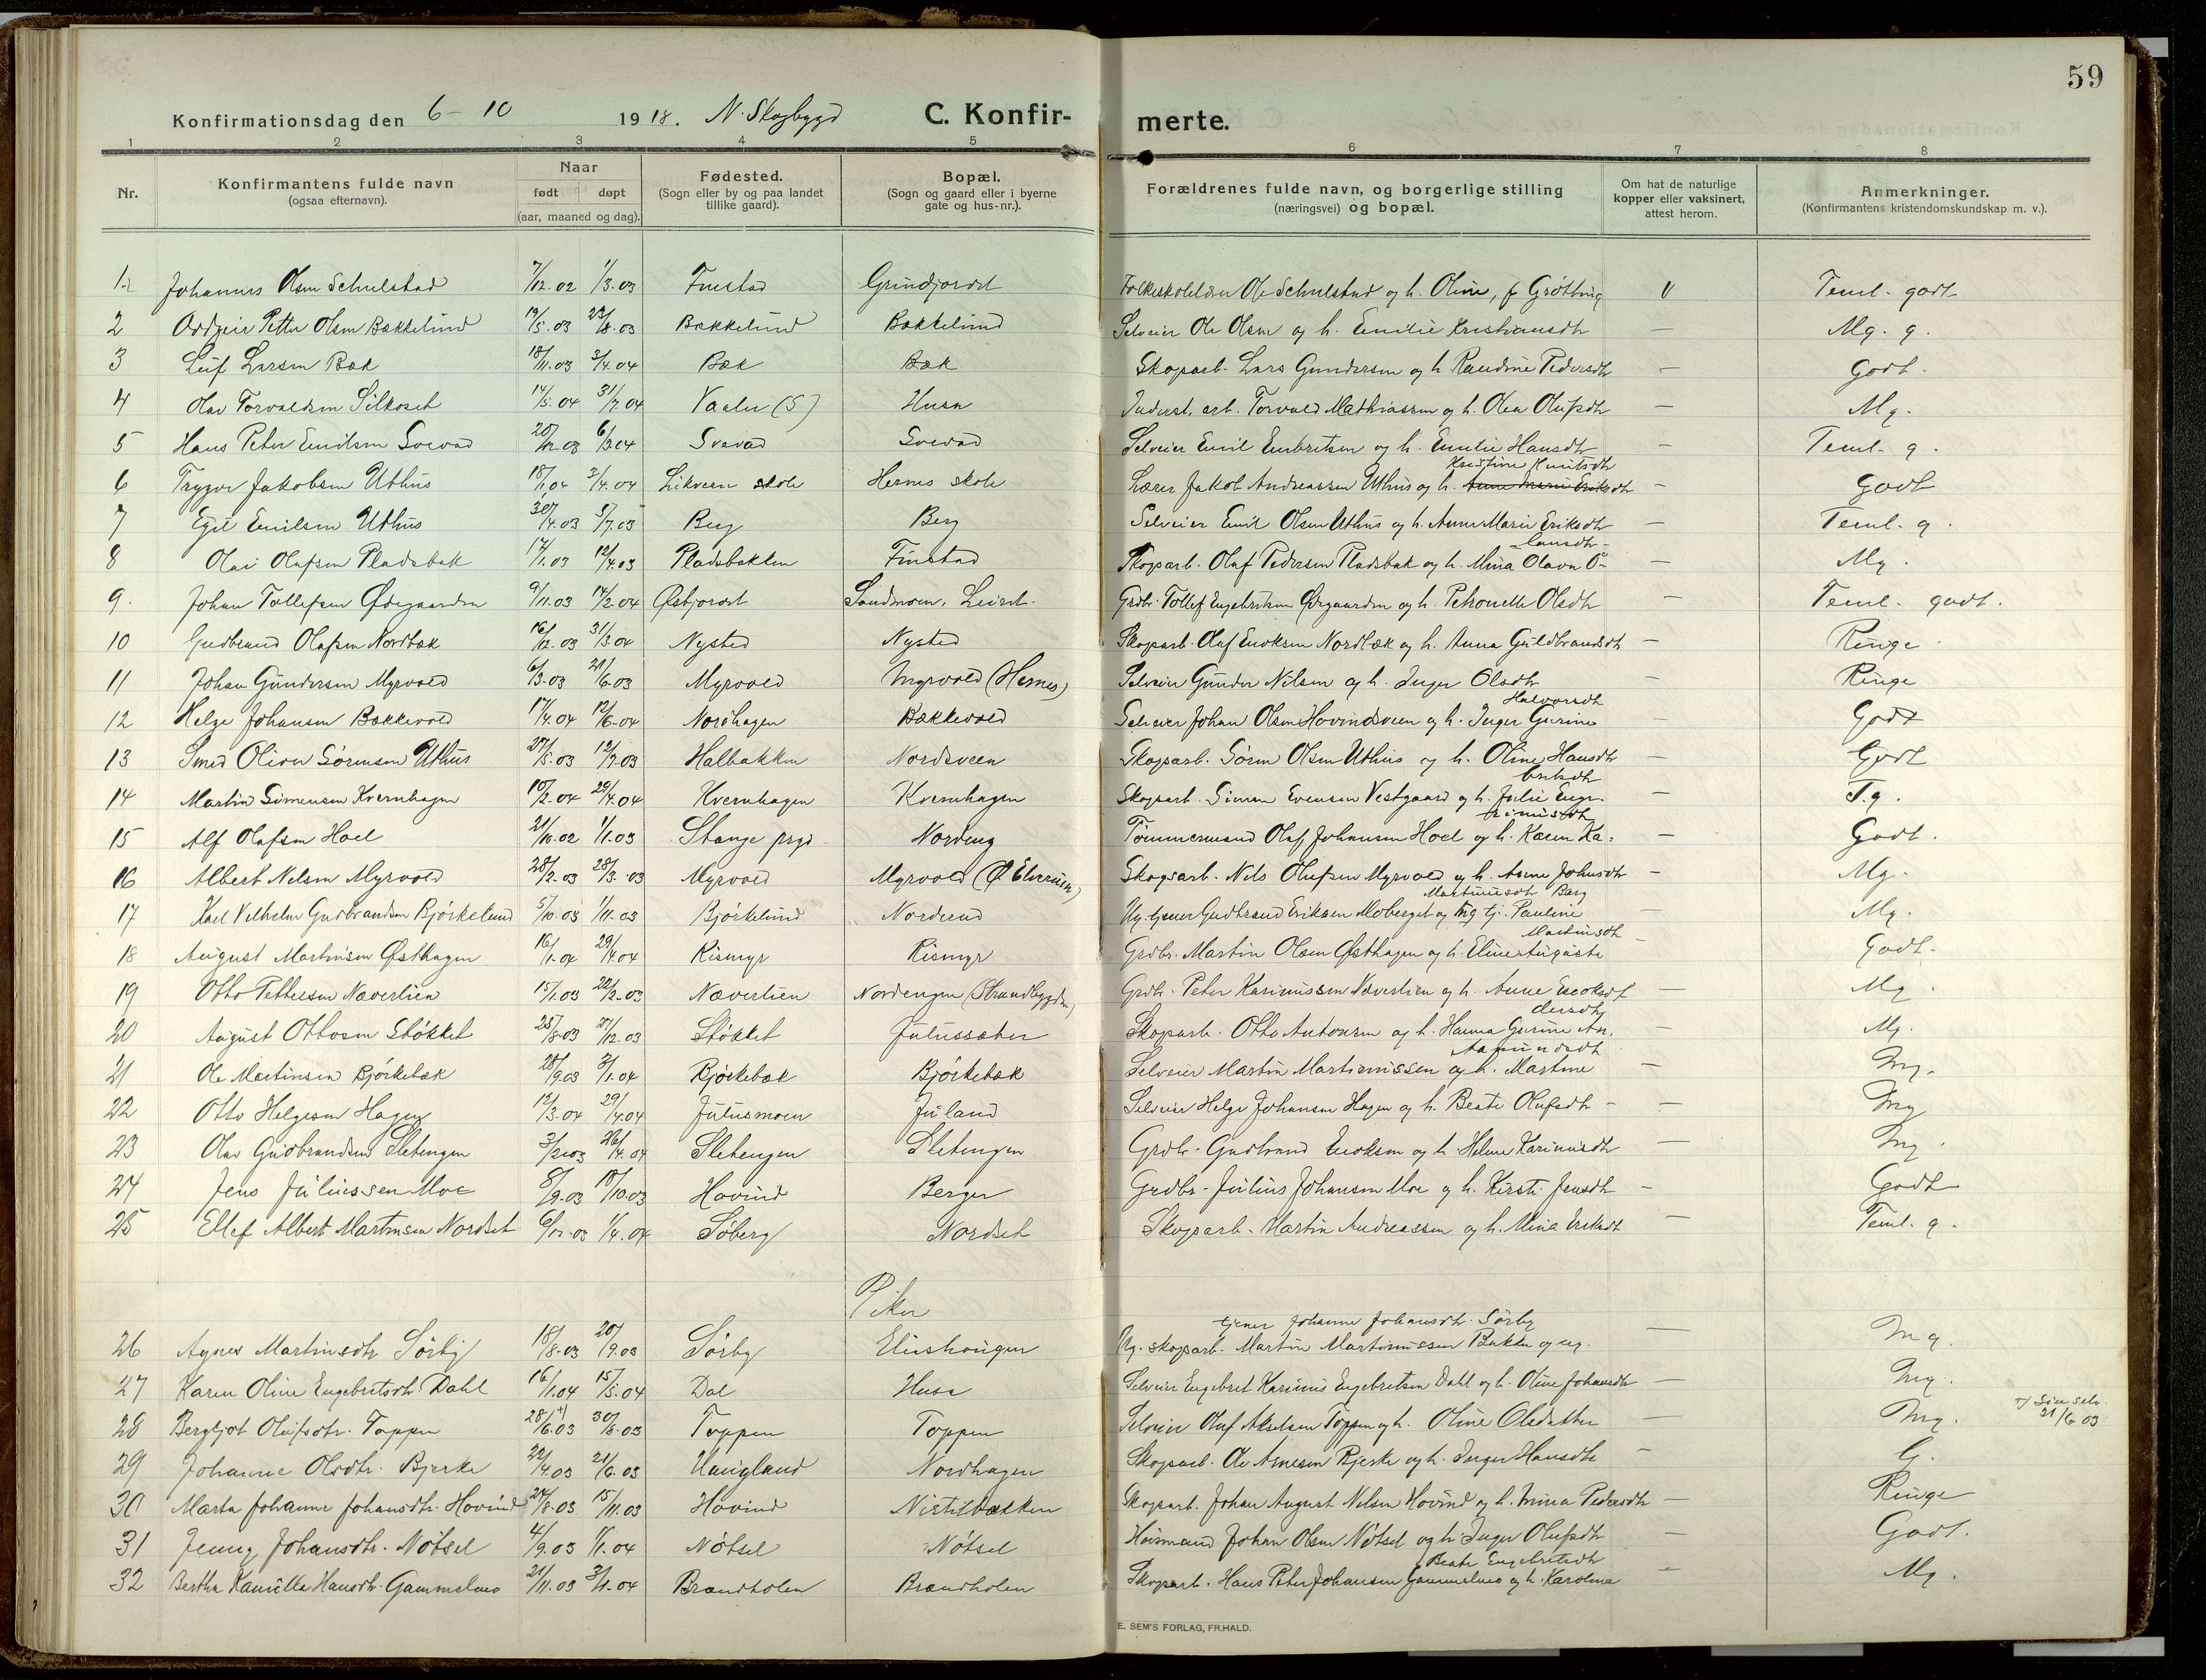 59
Konfirmationsdag den 6 - 10 1918. N. Skogbygd C. Konfir- merte.
1 2 3 4 5 6 7 8
Nr. Konfirmantens fulde navn (ogsaa efternavn). Naar født døpt (aar, maaned og dag). Fødested. (Sogn eller by og paa landet tillike gaard). Bopæl. (Sogn og gaard eller i byerne gate og hus-nr.). Forældrenes fulde navn, og borgerlige stilling (næringsvei) og bopæl. Om hat de naturlige kopper eller vaksinert, attest herom. Anmerkninger. (Konfirmantens kristendomskundskap m. v.).
1. Johannes Olsen Schulstad 7/12.02 1/3.03 Finstad Grindjordet Ole Schulstad og h. Oline, f. Grøtting V Teml. godt
2 Oddgeir Petter Olsen Bækkelund 19/5.03 23/8.03 Bækkelund Bækkelund Selveier Ole Olsen og h. Emilie Kristiansdtr — Mg. g.
3 Leif Larsen Bæk 18/11.03 3/4.04 Bæk Bæk Skogsarb. Lars Gundersen og h. Randine Pedersdtr — Godt.
4 Olav Torvaldsen Silkoset 14/5.04 31/7.04 Vaaler (S) Husa Indust. arb. Torvald Mathiassen og h. Olea Olufsdtr — Mg.
5 Hans Peter Emilsen Svevad 20/12.03 6/3.04 Svevad Svevad Selveier Emil Embretsen og h. Emilie Hansdtr — Teml. g.
6 Trygve Jakobsen Uthus 18/1.04 3/4.04 Likvern skole Hernes skole Lærer Jakob Andreassen Uthus og h. Anne Marie Eriksdtr Kristine Knutsdtr — Godt
7 Egil Emilsen Uthus 30/4.03 5/7.03 Berg Berg Selveier Emil Olsen Uthus og h. Anne Marie Eriksdtr — Teml. g.
8 Olai Olafsen Pladsbak 17/1.03 12/4.03 Pladsbakken Finstad Skogsarb. Olaf Pedersen Pladsbak og h. Mina Olava O- lausdtr — Mg.
9. Johan Tollefsen Ødegaarden 9/11.03 14/2.04 Østjordet Sandmoen, Leiret. Grdbr. Tollef Engebretsen Ødegaarden og h. Petronelle Olsdtr — Teml. godt.
10 Gudbrand Olafsen Nordbæk 16/12.03 31/3.04 Nysted Nysted Skogsarb. Olaf Enoksen Nordbæk og h. Anna Guldbrandsdtr — Ringe
11 Johan Gundersen Myrvold 6/3.03 21/6.03 Myrvold Myrvold (Hernes) Selveier Gunder Nilsen og h. Inger Olsdtr — Ringe
12 Helge Johansen Bækkevold 17/4.04 12/6.04 Nordhagen Bækkevold Selveier Johan Olsen Hovindsveen og h. Inger Gurine Halvorsdtr — Godt
13 Smed Oliver Sørensen Uthus 27/5.03 12/7.03 Halbakken Nordsveen Skogsarb. Søren Olsen Uthus og h. Oline Hansdtr — Godt
14 Martin Simensen Kvernhagen 10/2.04 24/4.04 Kvernhagen Kvernhagen Skogsarb. Simen Evensen Vestgaard og h. Julie Enge- bretsdtr — T.g.
15 Alf Olafsen Hoel 21/10.02 1/1.03 Stange prgd. Nordeng Tømmermand Olaf Johansen Hoel og h. Karen Ka- rinusdtr — Godt.
16 Albert Nilsen Myrvold 28/2.03 28/3.03 Myrvold Myrvold (Ø. Elverum) Skogsarb. Nils Olufsen Myrvold og h. Anne Johnsdtr — Mg.
17 Karl Vilhelm Gudbrandsen Bjørkelund 5/10.03 1/11.03 Bjørkelund Norderud Ug. tjener Gudbrand Eriksen Moberget og ug. tj. Pauline Martinusdtr Berg — Mg.
18 August Martinsen Østhagen 16/1.04 29/4.04 Rismyr Rismyr Grdbr. Martin Olsen Østhagen og h. Eline Augusta Martinsdtr — Godt.
19 Otto Pettersen Næverlien 15/1.03 22/2.03 Næverlien Nordengen (Strandbygden) Grdbr. Peter Karinussen Næverlien og h. Anne Enoksdt — Mg.
20 August Ottosen Støkket 25/8.03 27/12.03 Støkket Julussæter Skogsarb. Otto Antonsen og h. Hanna Gurine An- dersdtr — Mg.
21 Ole Martinsen Bjørkebæk 28/9.03 3/1.04 Bjørkebæk Bjørkebæk Selveier Martin Martinussen og h. Martine Aamundsdt — Mg.
22 Otto Helgesen Hagen 12/3.04 29/4.04 Julusmoen Juland Selveier Helge Johansen Hagen og h. Beate Olufsdtr — Mg
23 Olav Gudbrandsen Sletengen 3/2.03 26/4.04 Sletengen Sletengen Grdbr. Gudbrand Enoksen og h. Helene Karinusdtr — Mg.
24 Jens Juliussen Moe 8/9.03 18/10.03 Hovind Berger Grdbr. Julius Johansen Moe og h. Kirsti Jensdtr — Godt
25 Ellef Albert Martinsen Nordset 6/12.03 1/4.04 Søberg Nordset Skogsarb. Martin Andreassen og h. Mina Eriksdt — Teml. g.
Piker
26 Agnes Martinsdtr. Sørby 18/8.03 20/9.03 Sørby Elieshaugen Ug. skogsarb. Martin Martinussen Bakken og ug. tjener Johanne Johansdtr. Sørby — Mg.
27 Karen Oline Engebretsdtr. Dahl 16/1.04 15/5.04 Dal Husa Selveier Engebret Karinius Engebretsen Dahl og h. Oline Johansdtr — Mg.
28 Bergljot Olufsdtr. Toppen 28/6.03 x) 30/8.03 Toppen Toppen Selveier Oluf Akselsen Toppen og h. Oline Olsdatter Mg. 21/6 03
29 Johanne Olsdtr. Bjerke 22/4.03 21/6.03 Haugland Nordhagen Skogsarb. Ole Arnesen Bjerke og h. Inger Hansdtr — G.
30 Marta Johanne Johansdtr. Hovind 24/8.03 15/11.03 Hovind Nistilbakken Skogsarb. Johan August Nilsen Hovind og h. Mina Pedersdtr — Ringe
31 Jenny Johansdtr. Nøtsel 4/9.03 1/1.04 Nøtsel Nøtsel Husmand Johan Olsen Nøtsel og h. Inger Olufsdtr — Godt.
32 Bertha Kamilla Hansdtr. Gammelmo 21/11.03 3/1.04 Brændholen Brændholen Skogsarb. Hans Peter Johansen Gammelmo og h. Karoline Beate Engebretsdtr — Mg.
E. SEM'S FORLAG, FR.HALD.